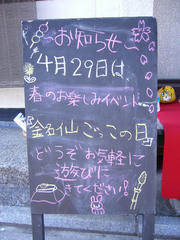 ～お知らせ～
4月29日は
春のお楽しみイベント
金名仙ごっこの日
どうぞお気軽に
遊びに
きてください!